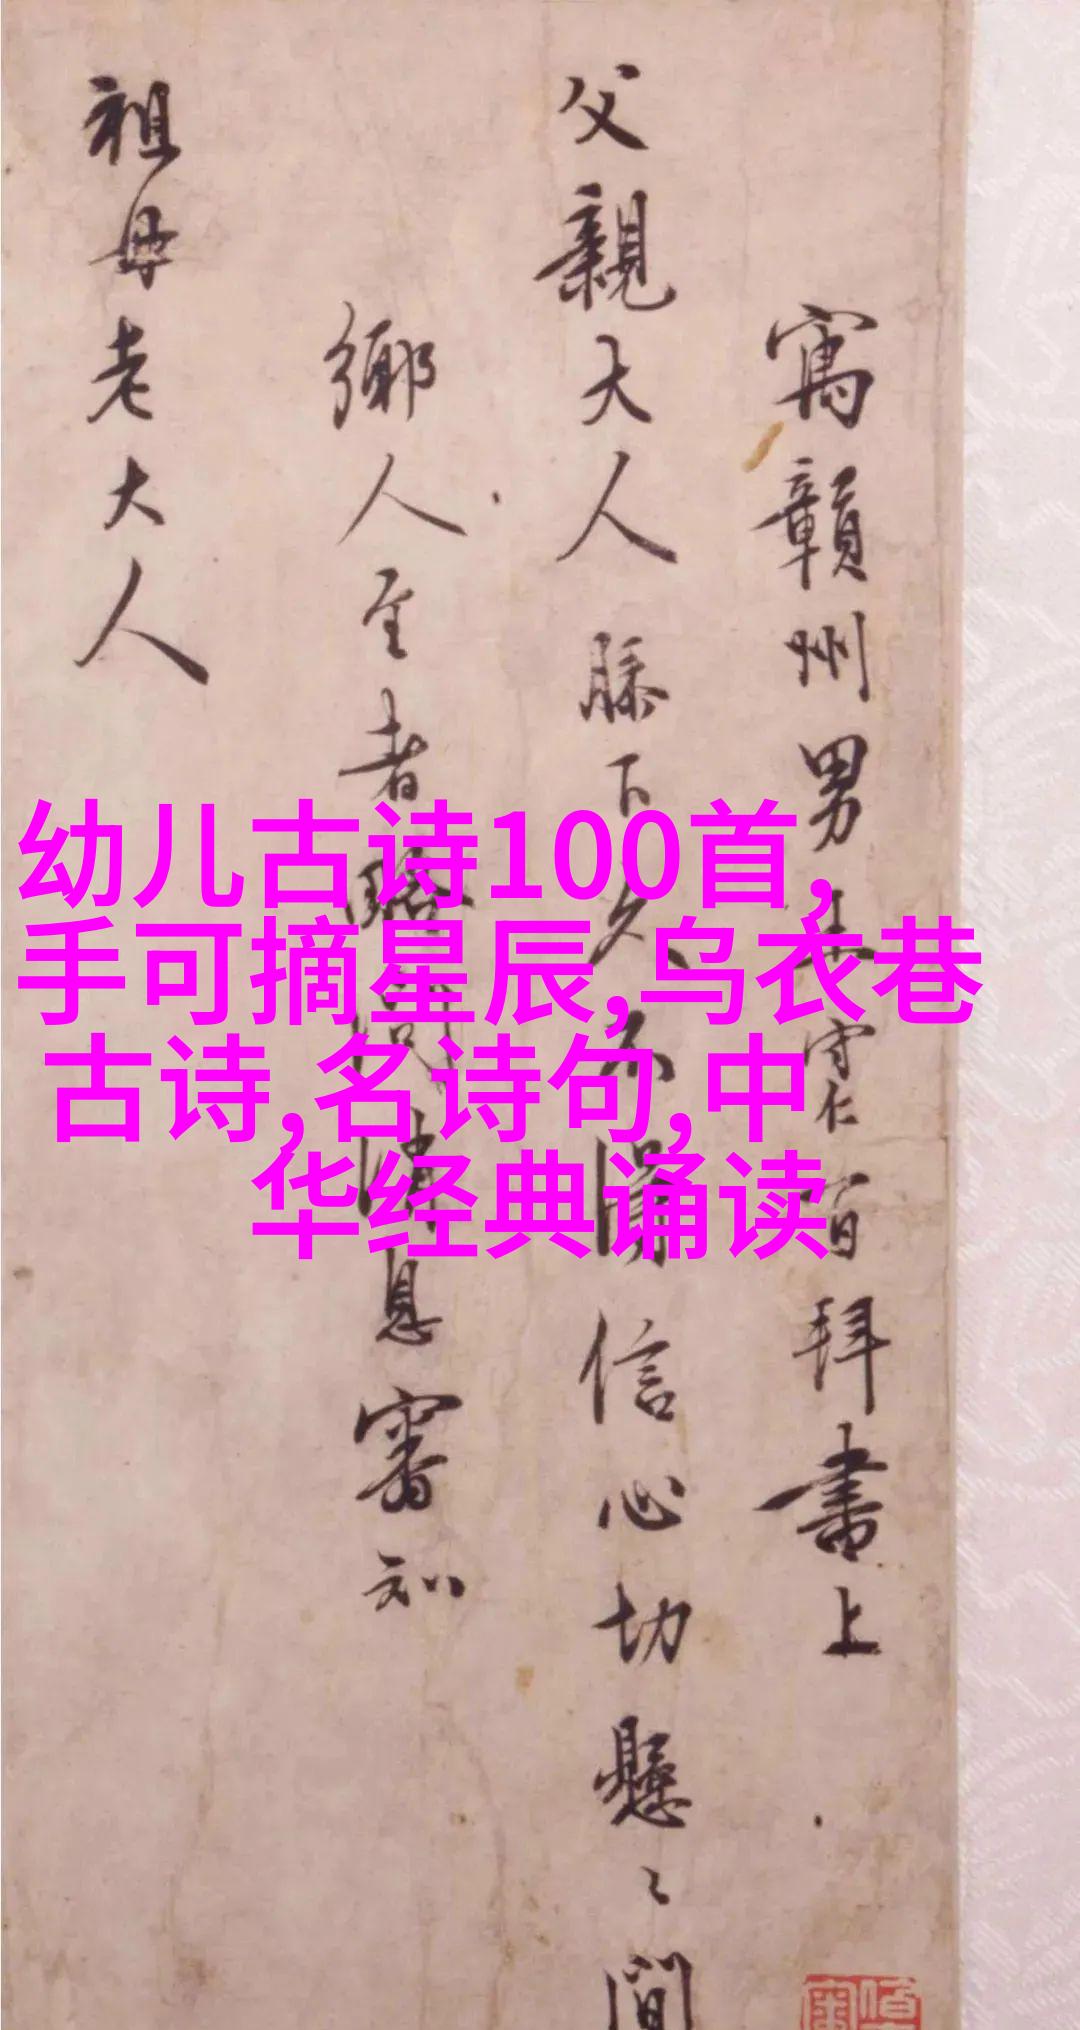 寓贛州男王守仁百拜書上
父親大人膝下久不得信心切懸〻間
鄉人至者略問消息審知
祖母老大人
幼儿古诗100首,
手可摘星辰,乌衣巷
古诗,名诗句,中
华经典诵读